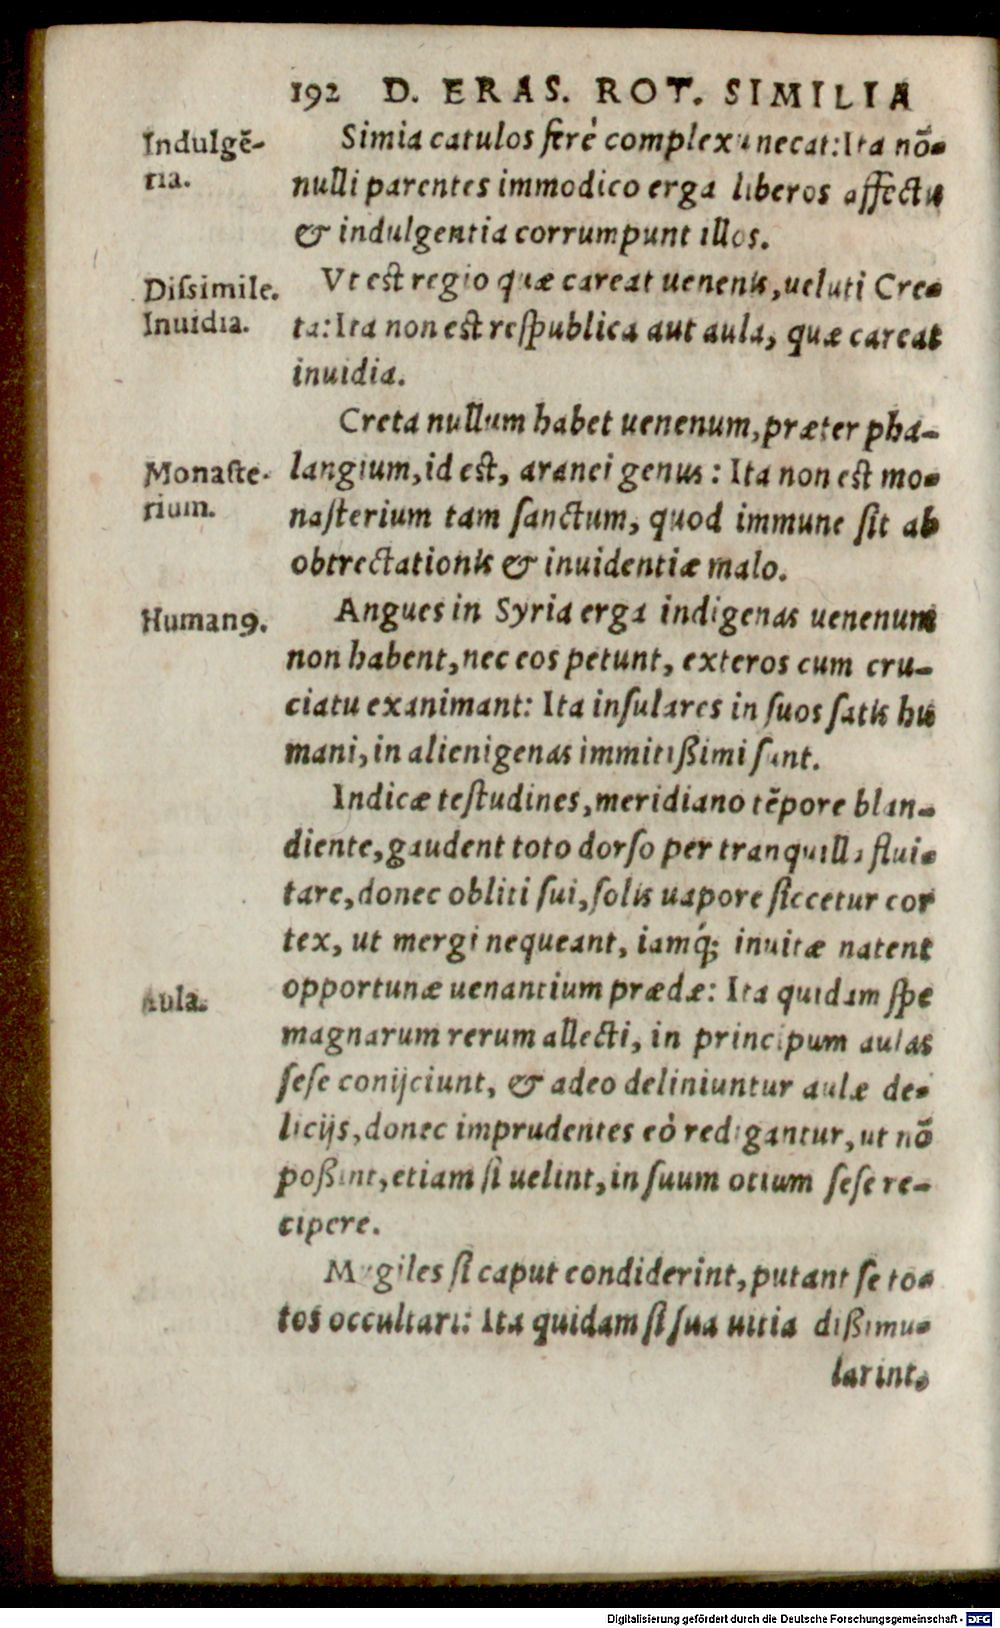 192 D. ERAS. ROT. SIMILIA
Indulgẽ-
tia.
Simia catulos ferè complexu necat: Ita nõ-
nulli parentes immodico erga liberos affectu
& indulgentia corrumpunt illos.
Dissimile.
Inuidia.
Vt est regio quæ careat uenenis, ueluti Cre-
ta: Ita non est respublica aut aula, quæ careat
inuidia.
Creta nullum habet uenenum, præter pha-
Monaste-
rium.
langium, id est, aranei genus: Ita non est mo-
nasterium tam sanctum, quod immune sit ab
obtrectationis & inuidentiæ malo.
Humanꝰ.
Angues in Syria erga indigenas uenenum
non habent, nec eos petunt, exteros cum cru-
ciatu exanimant: Ita insulares in suos satis hu
mani, in alienigenas immitißimi sunt.
Indicæ testudines, meridiano tẽpore blan-
diente, gaudent toto dorso per tranquilla flui-
tare, donec obliti sui, solis uapore siccetur cor
tex, ut mergi nequeant, iamq́; inuitæ natent
Aula.
opportunæ uenantium prædæ: Ita quidam spe
magnarum rerum allecti, in principum aulas
sese conijciunt, & adeo deliniuntur aulæ de-
licijs, donec imprudentes eò redigantur, ut nõ
poßint, etiam si uelint, in suum otium sese re-
cipere.
Mugiles si caput condiderint, putant se to-
tos occultari: Ita quidam si sua uitia dißimu-
larint,
Digitalisierung gefördert durch die Deutsche Forschungsgemeinschaft - DFG